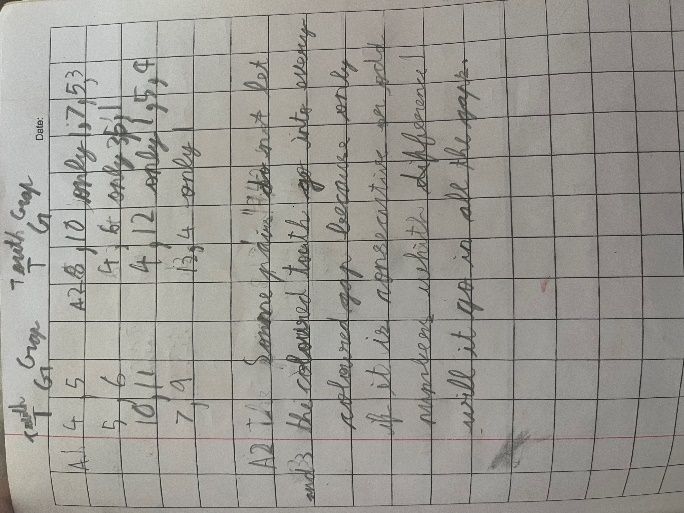 Date:
Tooth Gap Tooth Gap
T G T G
A1 4, 5 A2 8, 10 only 1, 7, 5 3,
5, 6 4, 6 only 3 5, 1
10, 11 4, 12 only 1, 5, 4
7, 9 13, 4 only 1
A2 Some pairs do not let
and 3 the coloured tooth go into every
coloured gap because only
if it is consecutive or odd
numbers which difference
will it go in all the gaps.